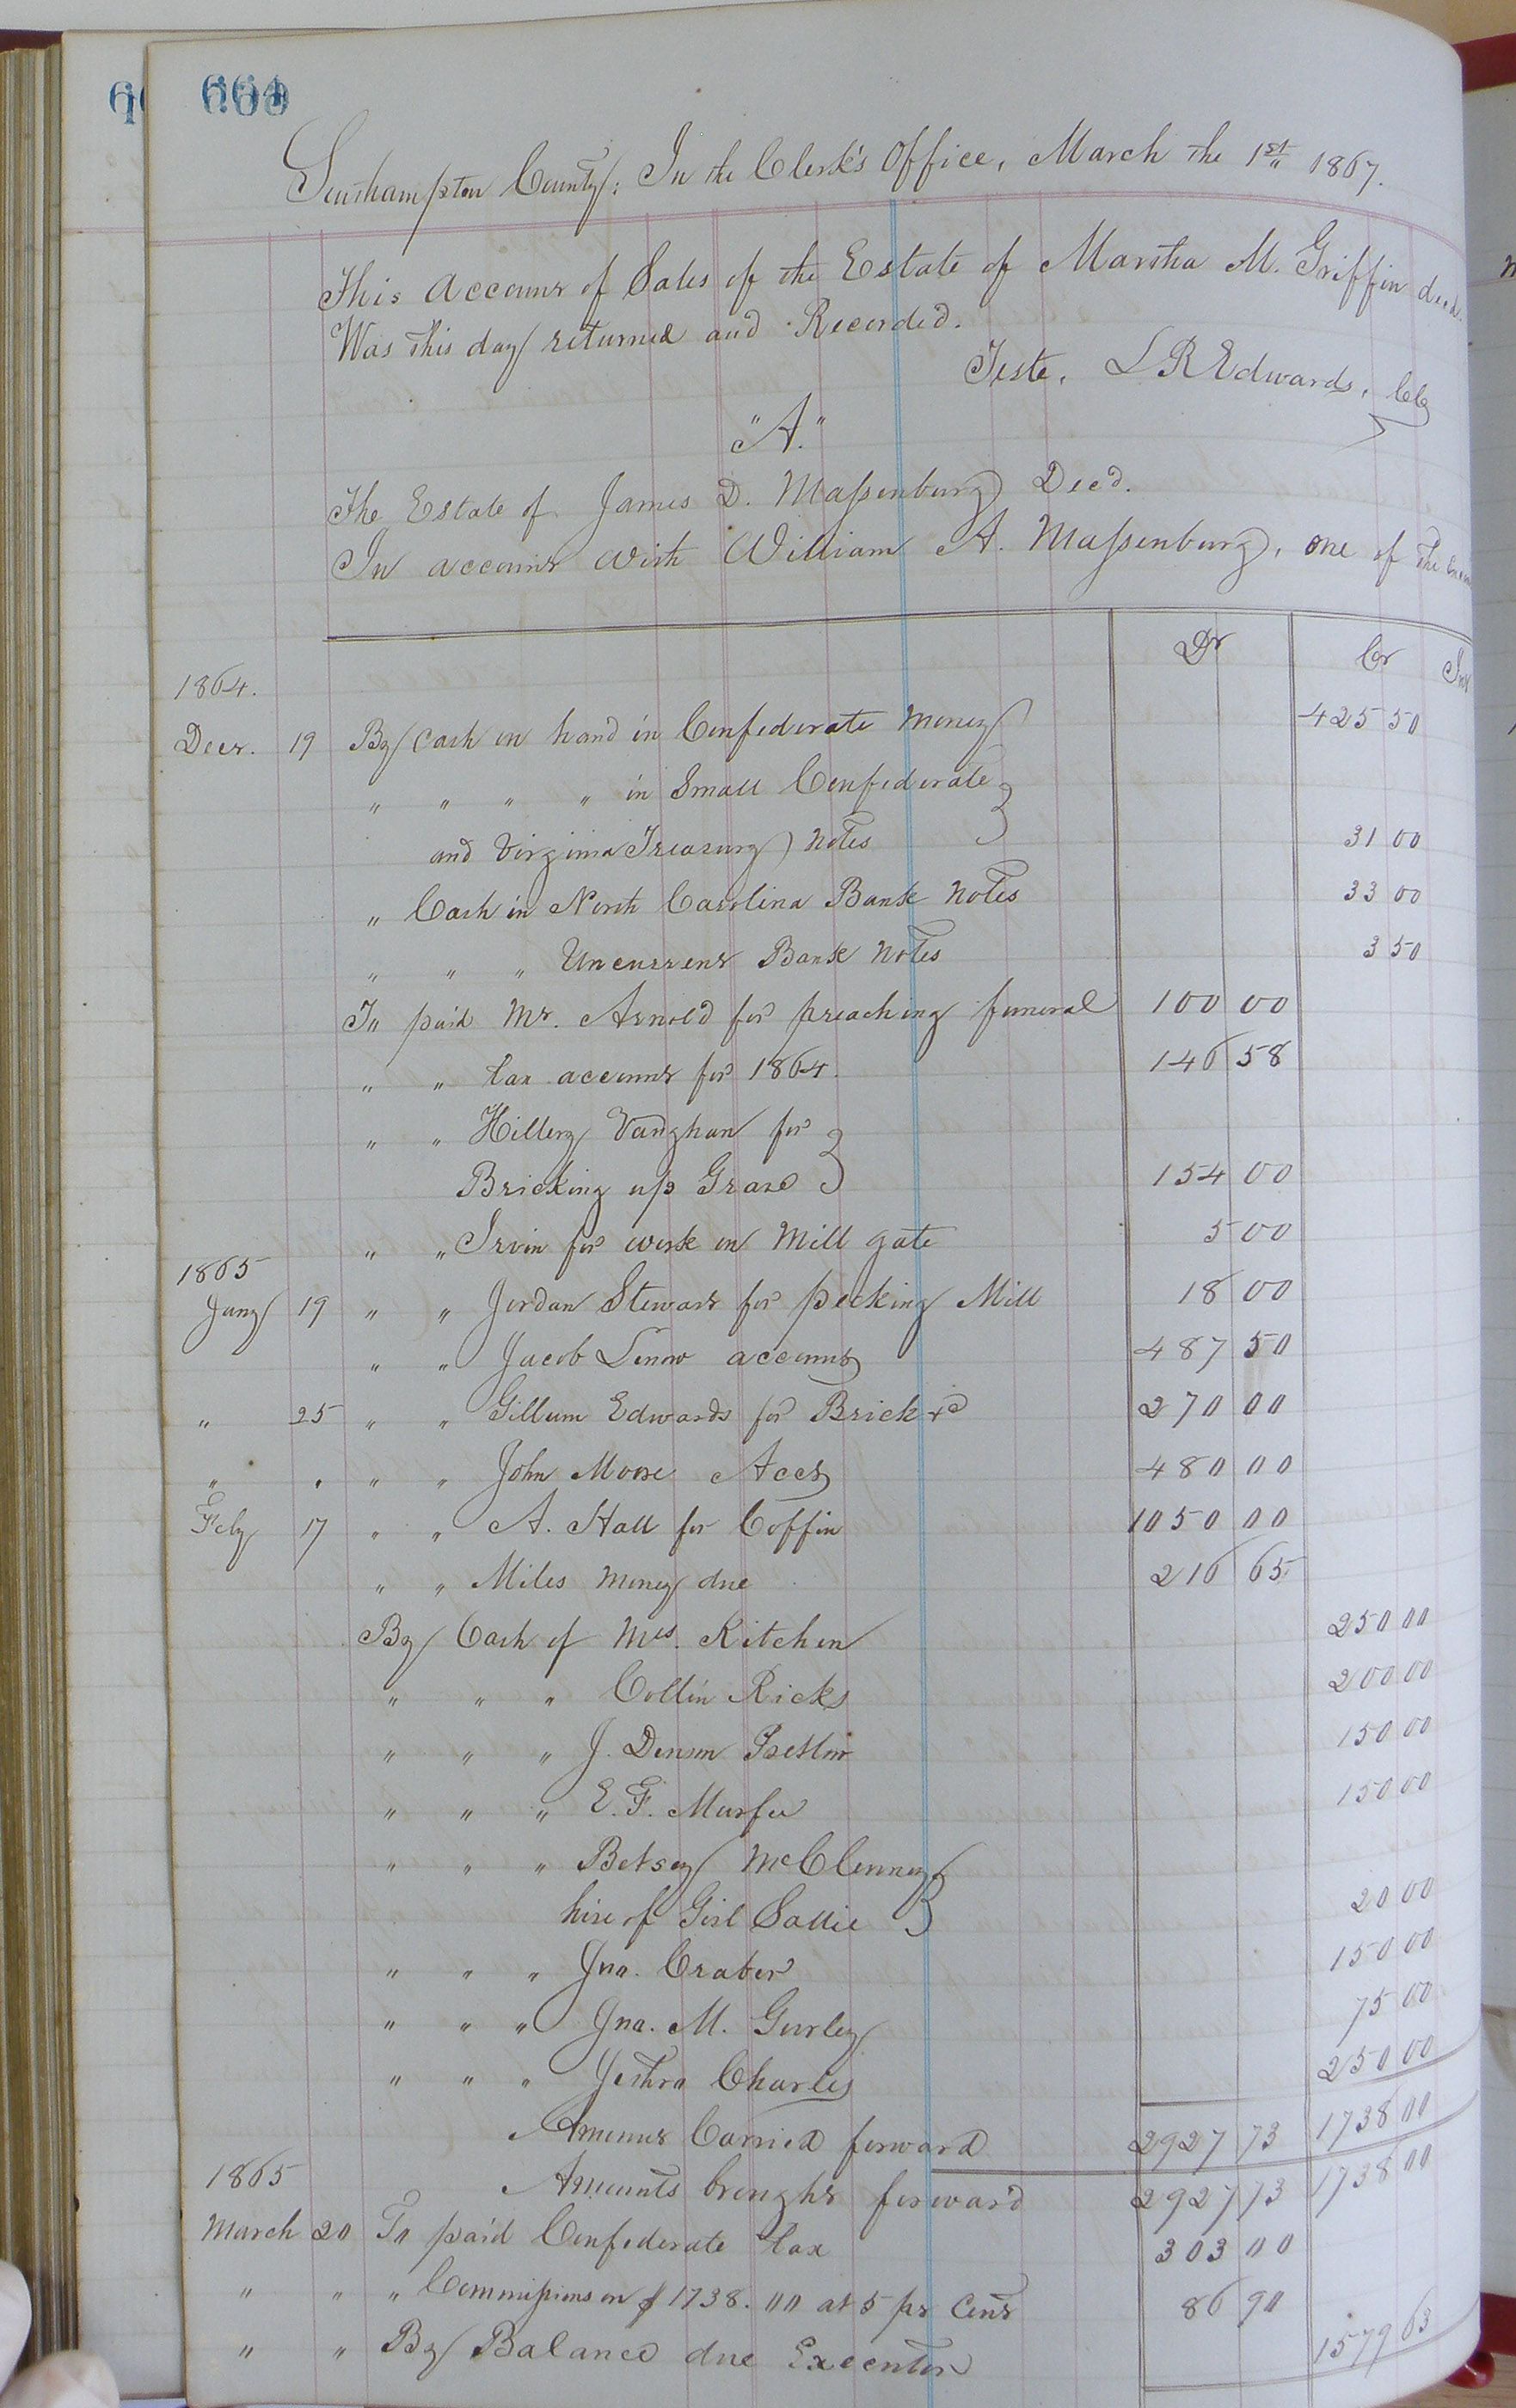 Southampton County: In the Clerk's Office, March the 1st 1867.
This Account of Sales of the Estate of Martha M. Griffin decd.
Was this day returned and Recorded.
Teste, L R Edwards, CC
"A."
The Estate of James D. Massenburg Decd.
In account with William A. Massenburg, one of the
Dr Cr
1864.
Decr. 19 By Cash on hand in Confederate money 425 50
" " " " in Small Confederate
and Virginia Treasury notes 31 00
" Cash in North Carolina Bank Notes 33 00
" " " Uncurrent Bank Notes 3 50
To paid Mr. Arnold for preaching funeral 100 00
" " tax account for 1864. 146 58
" " Hillery Vaughan for
Bricking up Grave 154 00
" " Irvin for work on Mill gate 5 00
1865
Jany 19 " " Jordan Stewart for pecking Mill 18 00
" " Jacob Lenow account 487 50
" 25 " " Gillum Edwards for Brick &c 270 00
" " " " John Moore Acct 480 00
Feby 17 " " A. Hall for Coffin 1050 00
" " Miles money due 216 65
By Cash of Mrs. Kitchen 250 00
" " " Collin Ricks 200 00
" " " J. Denson Pretlow 150 00
" " " E. F. Murfee 150 00
" " " Betsey McClenney
hire of Girl Sallie 20 00
" " " Jno. Crater 150 00
" " " Jno. M. Gurley 75 00
" " " Jethro Charles 250 00
Amount Carried forward 2927 73 1738 00
1865 Amounts brought forward 2927 73 1738 00
March 20 To paid Confederate tax 303 00
" " " Commissions on $1738.00 at 5 pr Cent 86 90
" " By Balance due Executor 1579 63